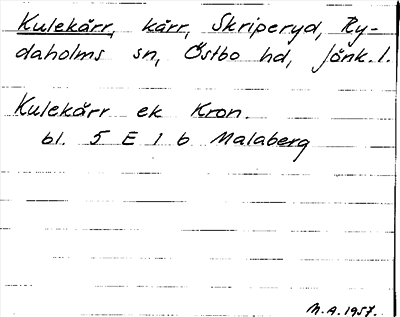 Kulekärr, kärr, Skriperyd, Ry-
daholms sn, Östbo hd, Jönk. l.
Kulekärr ek Kron.
bl. 5 E 1 b Malaberg
M.A. 1957.